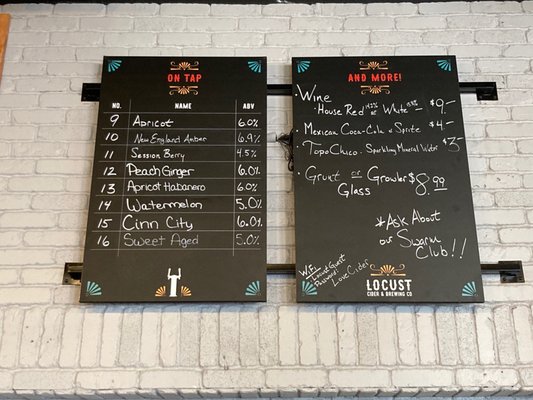 ON TAP
NO. NAME ABV
9 Apricot 6.0%
10 New England Amber 6.9%
11 Session Berry 4.5%
12 Peach Ginger 6.0%
13 Apricot Habanero 6.0%
14 Watermelon 5.0%
15 Cinn City 6.0%
16 Sweet Aged 5.0%
AND MORE!
• Wine
• House Red or White $9-
• Mexican Coca-Cola or Sprite $4-
• Topo Chico • Sparkling Mineral Water $3-
• Grunt or Growler $8.99
Glass
*Ask About
our Swarm
Club!!
Wifi
Locust Guest
Password:
Love Cider
LOCUST
CIDER & BREWING CO